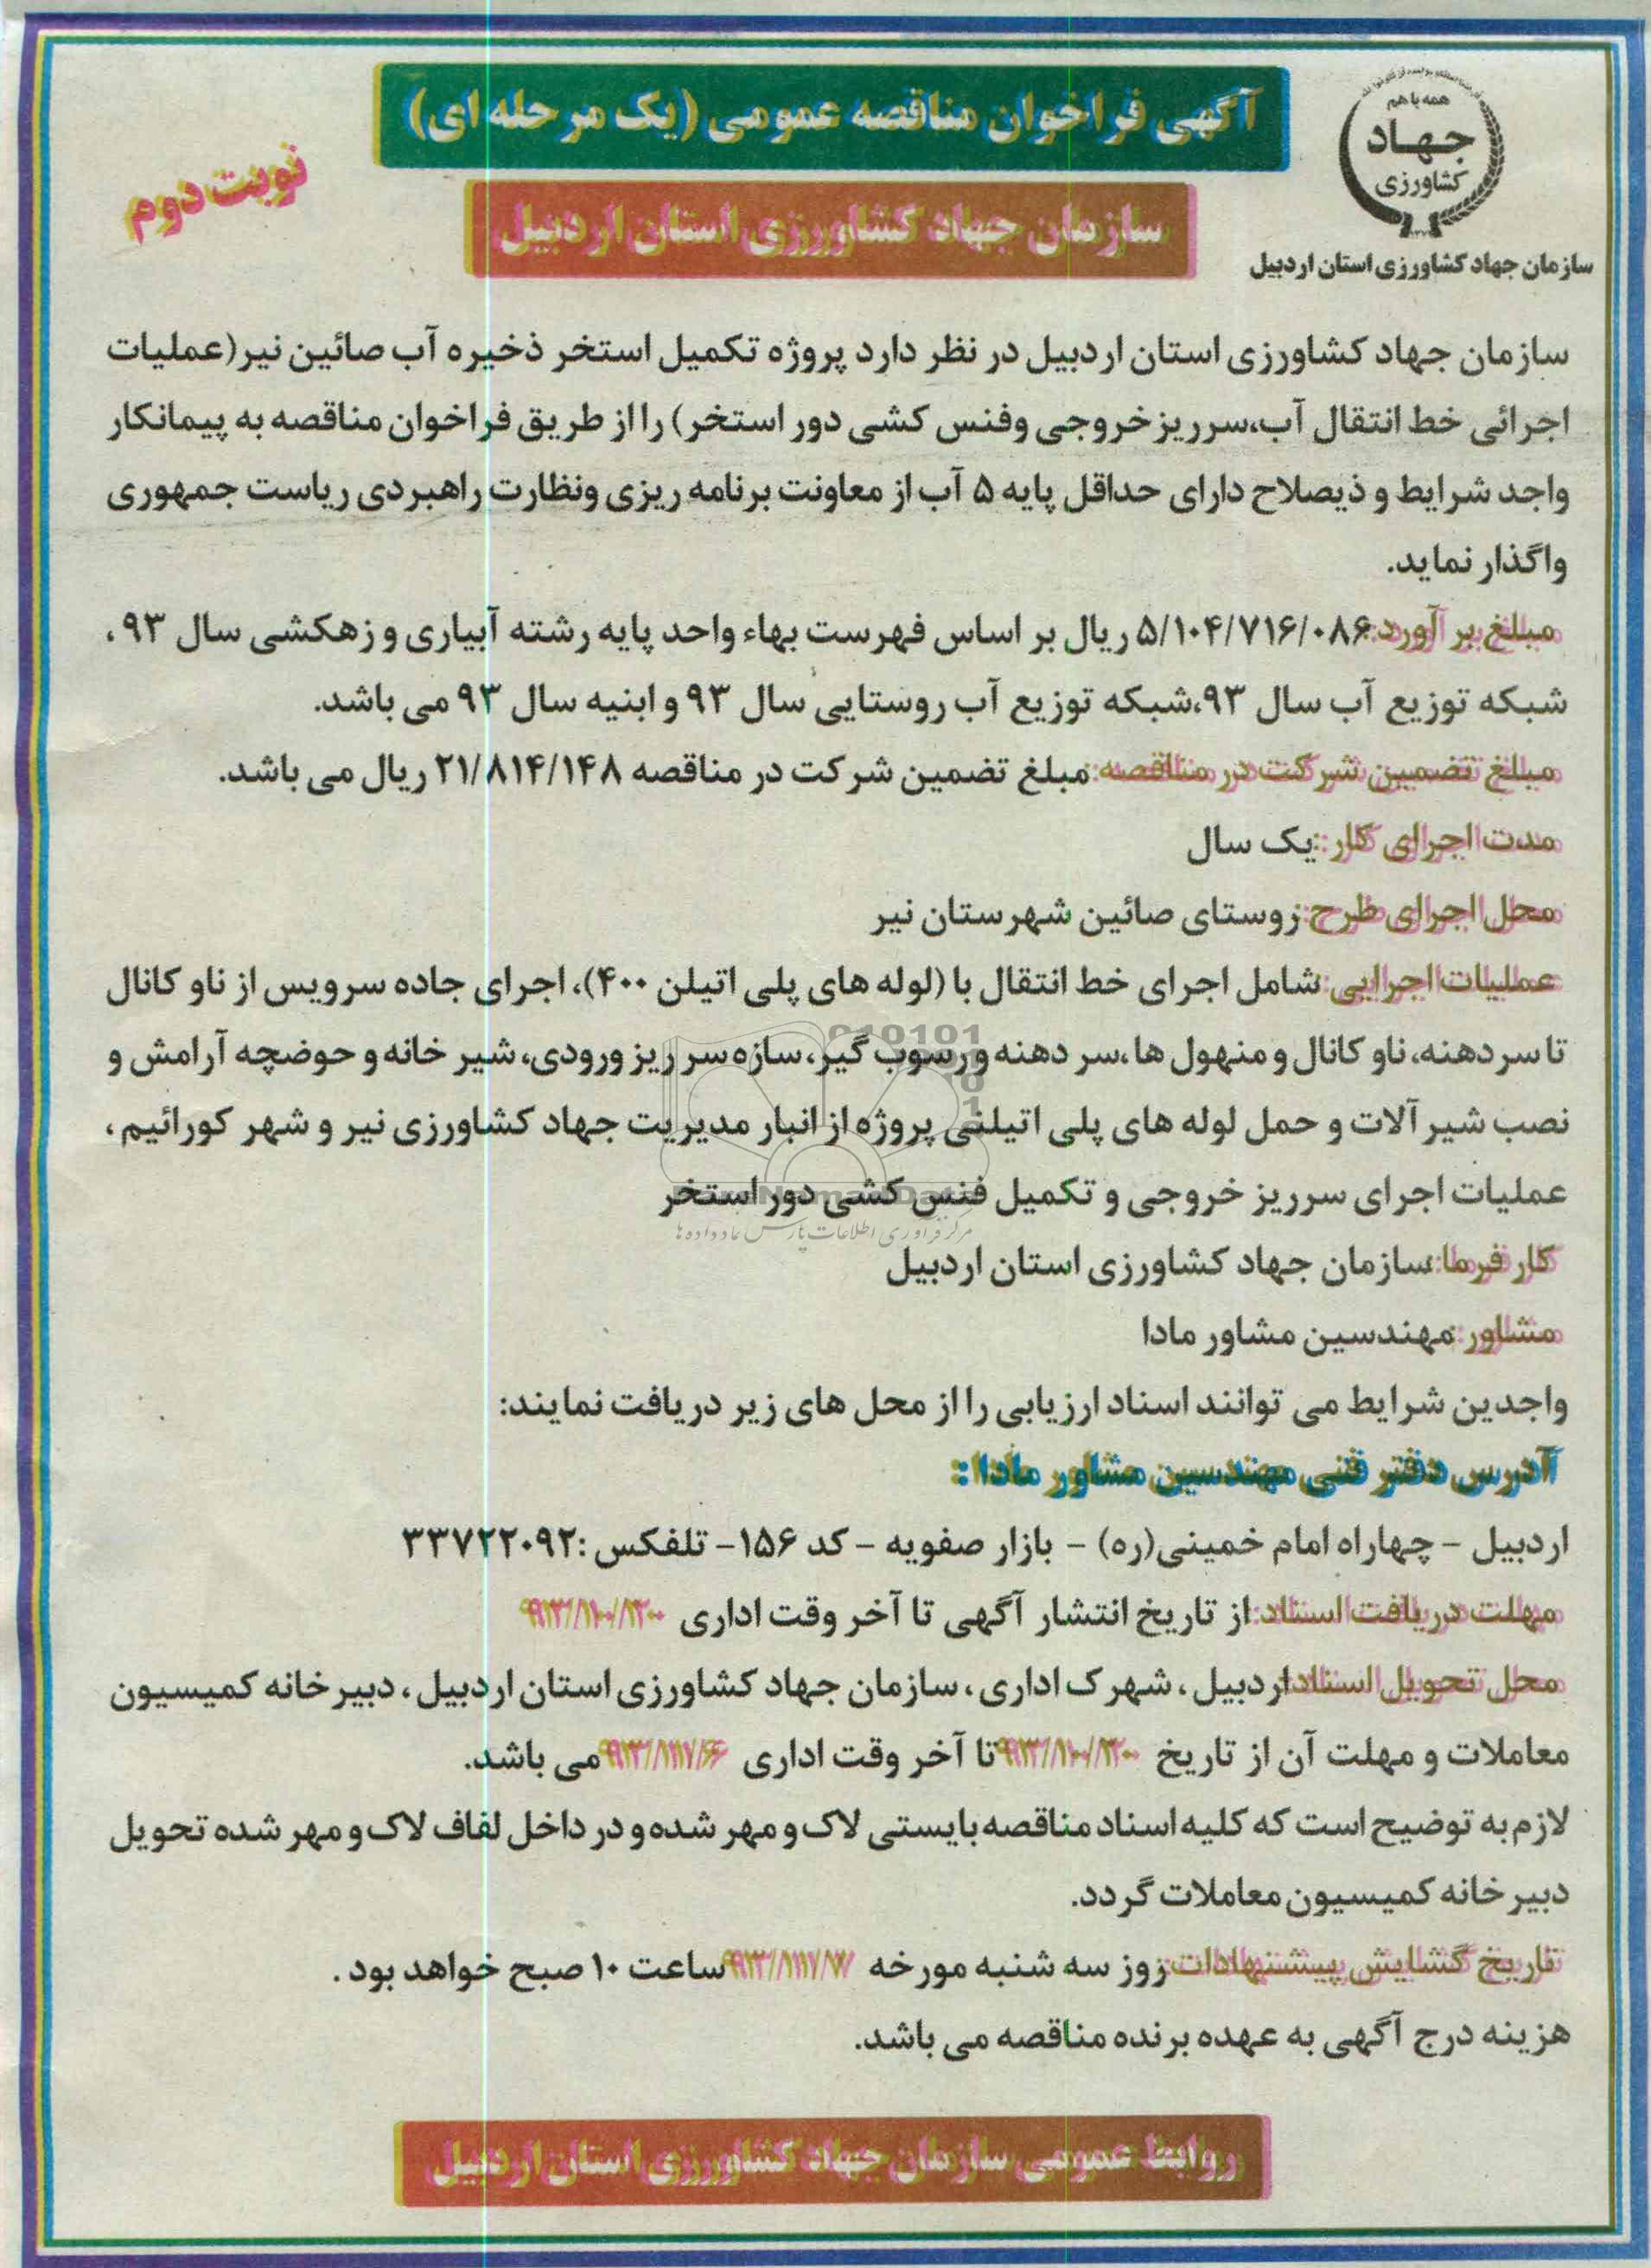 آگهی فراخوان مناقصه عمومی (یک مرحله ای)
همه با هم
جهاد
کشاورزی
سازمان جهاد کشاورزی استان اردبیل
نوبت دوم
سازمان جهاد کشاورزی استان اردبیل
سازمان جهاد کشاورزی استان اردبیل در نظر دارد پروژه تکمیل استخر ذخیره آب صائین نیر(عملیات
اجرائی خط انتقال آب،سرریز خروجی وفنس کشی دور استخر) را از طریق فراخوان مناقصه به پیمانکار
واجد شرایط و ذیصلاح دارای حداقل پایه ۵ آب از معاونت برنامه ریزی ونظارت راهبردی ریاست جمهوری
واگذار نماید.
مبلغ بر آورد:۵/۱۰۴/۷۱۶/۰۸۶ ریال بر اساس فهرست بهاء واحد پایه رشته آبیاری و زهکشی سال ۹۳ ،
شبکه توزیع آب سال ۹۳،شبکه توزیع آب روستایی سال ۹۳ و ابنیه سال ۹۳ می باشد.
مبلغ تضمین شرکت در مناقصه: مبلغ تضمین شرکت در مناقصه ۲۱/۸۱۴/۱۴۸ ریال می باشد.
مدت اجرای کار: یک سال
محل اجرای طرح: روستای صائین شهرستان نیر
عملیات اجرایی: شامل اجرای خط انتقال با (لوله های پلی اتیلن ۴۰۰)، اجرای جاده سرویس از ناو کانال
تا سر دهنه، ناو کانال و منهول ها ،سر دهنه ورسوب گیر، سازه سر ریز ورودی، شیر خانه و حوضچه آرامش و
نصب شیر آلات و حمل لوله های پلی اتیلنی پروژه از انبار مدیریت جهاد کشاورزی نیر و شهر کورائیم ،
عملیات اجرای سرریز خروجی و تکمیل فنس کشی دور استخر
مرکز فرآوری اطلاعات پارس نماد داده ها
کار فرما: سازمان جهاد کشاورزی استان اردبیل
مشاور: مهندسین مشاور مادا
واجدین شرایط می توانند اسناد ارزیابی را از محل های زیر دریافت نمایند:
آدرس دفتر فنی مهندسین مشاور مادا :
اردبیل - چهاراه امام خمینی(ره) - بازار صفویه - کد ۱۵۶- تلفکس :۳۳۷۲۲۰۹۲
مهلت دریافت اسناد: از تاریخ انتشار آگهی تا آخر وقت اداری
محل تحویل اسناد: اردبیل ، شهرک اداری ، سازمان جهاد کشاورزی استان اردبیل ، دبیر خانه کمیسیون
معاملات و مهلت آن از تاریخ تا آخر وقت اداری می باشد.
لازم به توضیح است که کلیه اسناد مناقصه بایستی لاک و مهر شده و در داخل لفاف لاک و مهر شده تحویل
دبیر خانه کمیسیون معاملات گردد.
تاریخ گشایش پیشنهادات: روز سه شنبه مورخه ساعت ۱۰ صبح خواهد بود .
هزینه درج آگهی به عهده برنده مناقصه می باشد.
روابط عمومی سازمان جهاد کشاورزی استان اردبیل